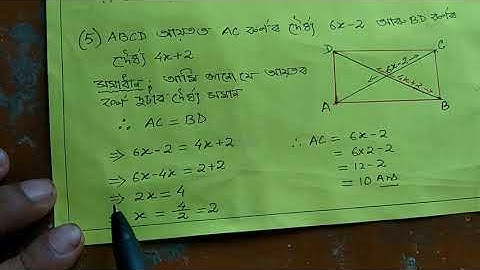 (5) ABCD আয়তত AC কৰ্ণৰ দৈৰ্ঘ্য 6x-2 আৰু BD কৰ্ণৰ
দৈৰ্ঘ্য 4x+2
সমাধান : আমি জানো যে আয়তৰ
কৰ্ণ দুটাৰ দৈৰ্ঘ্য সমান
∴ AC = BD
⇒ 6x-2 = 4x+2
⇒ 6x-4x = 2+2
⇒ 2x = 4
x = 4/2 = 2
D C
6x-2
4x+2
A B
∴ AC = 6x-2
= 6x2-2
= 12-2
= 10 Ans